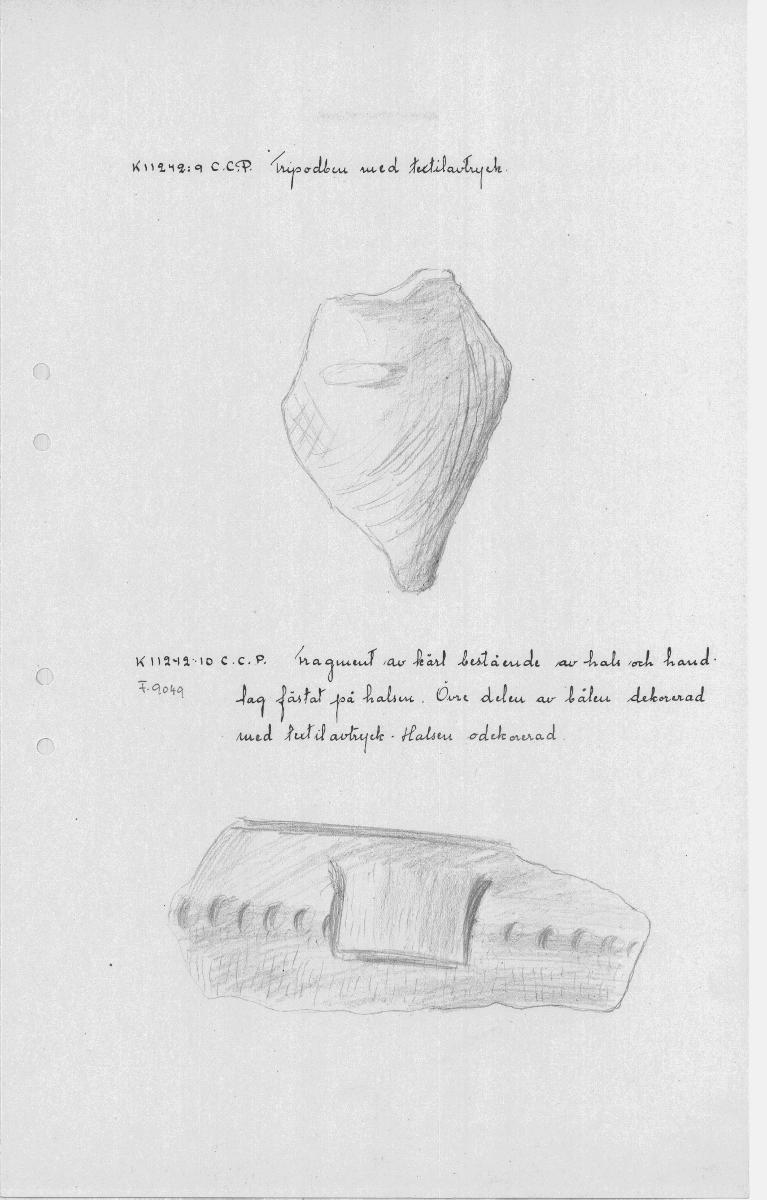 K11242:9 C.C.P. Tripodben med textilavtryck.
K11242:10 C.C.P. Fragment av kärl bestående av hals och hand-
F.9049
tag fästat på halsen. Övre delen av bålen dekorerad
med textilavtryck. Halsen odekorerad.